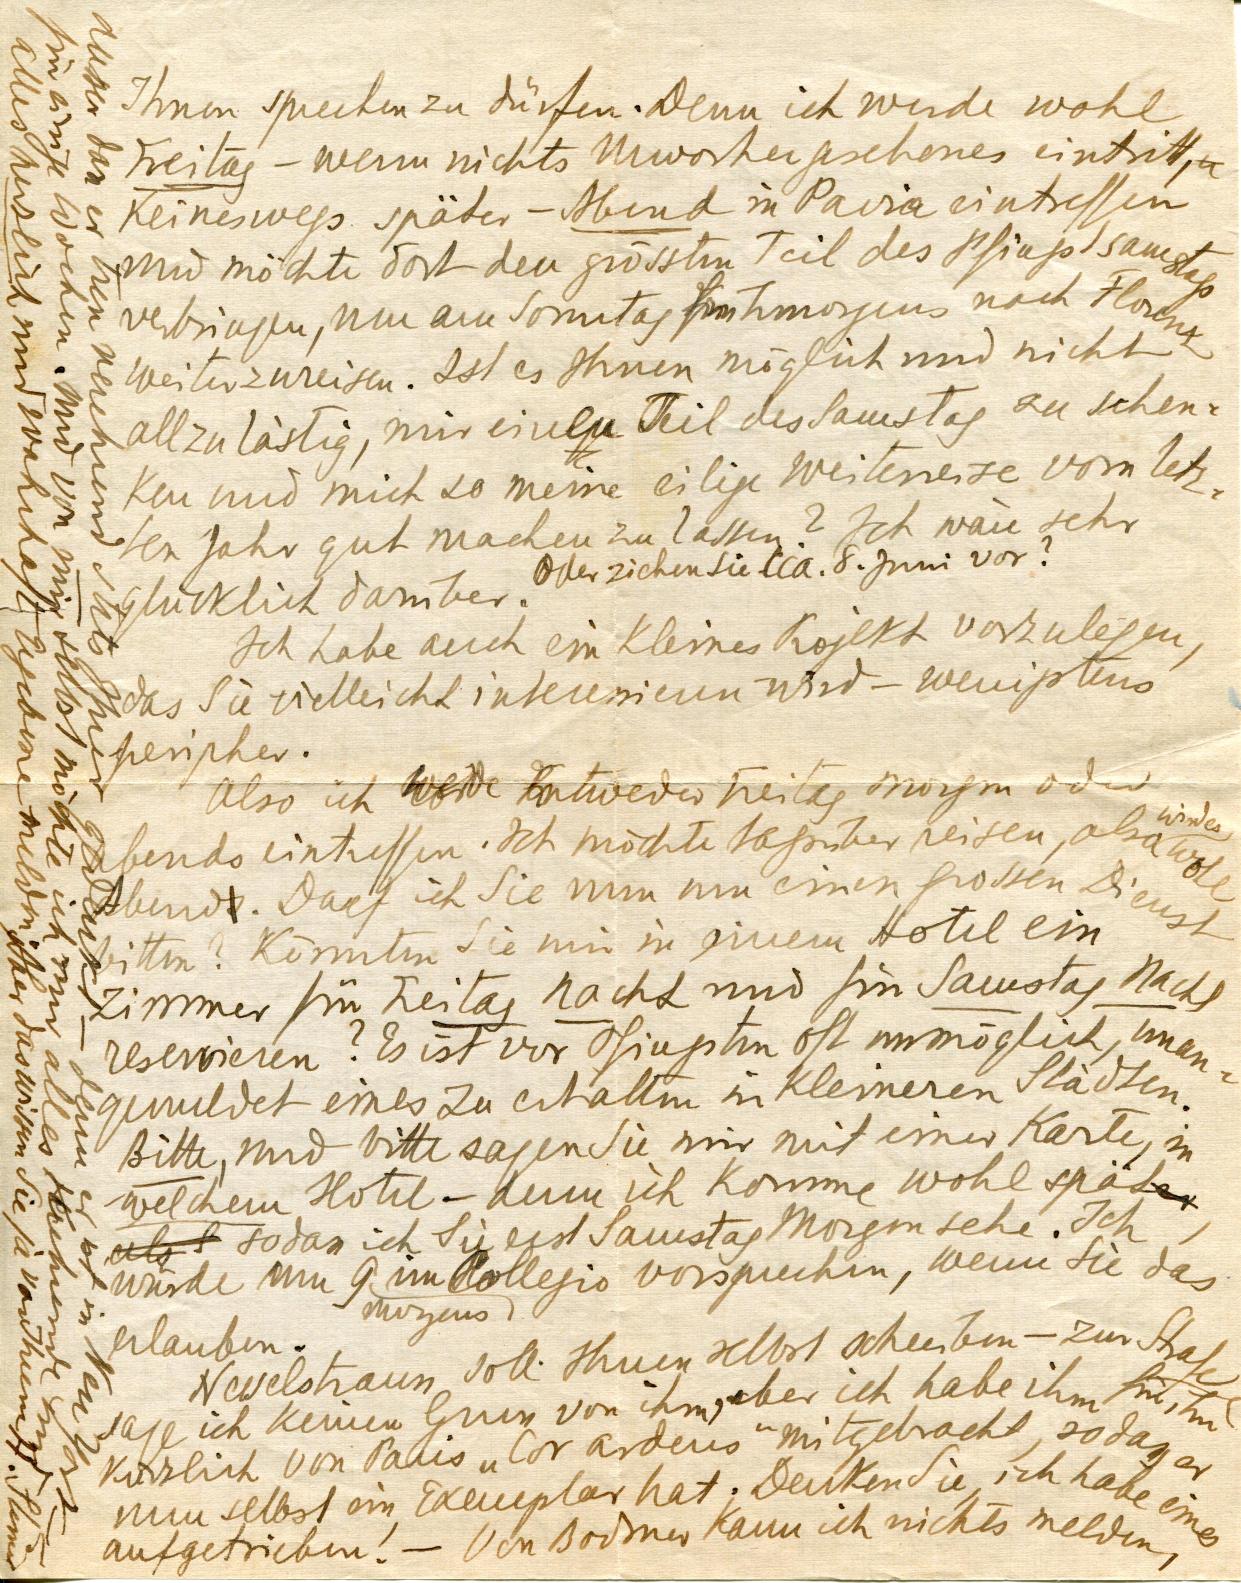 Ihnen sprechen zu dürfen. Denn ich werde wohl
Freitag – wenn nichts Unvorhergesehenes eintritt, u
keineswegs später – Abend in Pavia eintreffen
und möchte dort den grössten Teil des Pfingstsamstags
verbringen, um am Sonntag frühmorgens nach Florenz
weiterzureisen. Ist es Ihnen möglich und nicht
allzu lästig, mir einen Teil des Samstag zu schen-
ken und mich so meine eilige Weiterreise vom letz-
ten Jahr gut machen zu lassen? Ich wäre sehr
glücklich darüber. Oder ziehen Sie cca. 8. Juni vor?
Ich habe auch ein kleines Projekt vorzulegen,
das Sie vielleicht interessieren wird – wenigstens
peripher.
Also ich werde entweder Freitag morgen oder
abends eintreffen. Ich möchte tagsüber reisen, also wird es wohl
Abend. Darf ich Sie nun um einen grossen Dienst
bitten? Könnten Sie mir in einem Hotel ein
Zimmer für Freitag Nacht und für Samstag Nacht
reservieren? Es ist vor Pfingsten oft unmöglich, unan-
gemeldet eines zu erhalten in kleineren Städten.
Bitte, und bitte sagen Sie mir mit einer Karte, in
welchem Hotel – denn ich komme wohl spät,
sodass ich Sie erst Samstag Morgen sehe. Ich
würde um 9 morgens im Collegio vorsprechen, wenn Sie das
erlauben.
Nesselstrauss soll Ihnen selbst schreiben – zur Strafe
sage ich keinen Gruss von ihm, aber ich habe ihm für ihn
kürzlich von Paris „Cor ardens“ mitgebracht, sodass er
nun selbst ein Exemplar hat. Denken Sie, ich habe eines
aufgetrieben! – Von Bodmer kann ich nichts melden,
ausser dass er stets Ihrer gedenkt – denn er ist in New York
für einige Wochen. Und von mir selbst möchte ich nur alles
alles herzlich und wahrhaft Ergebene melden. Aber das wissen Sie ja von Ihrem